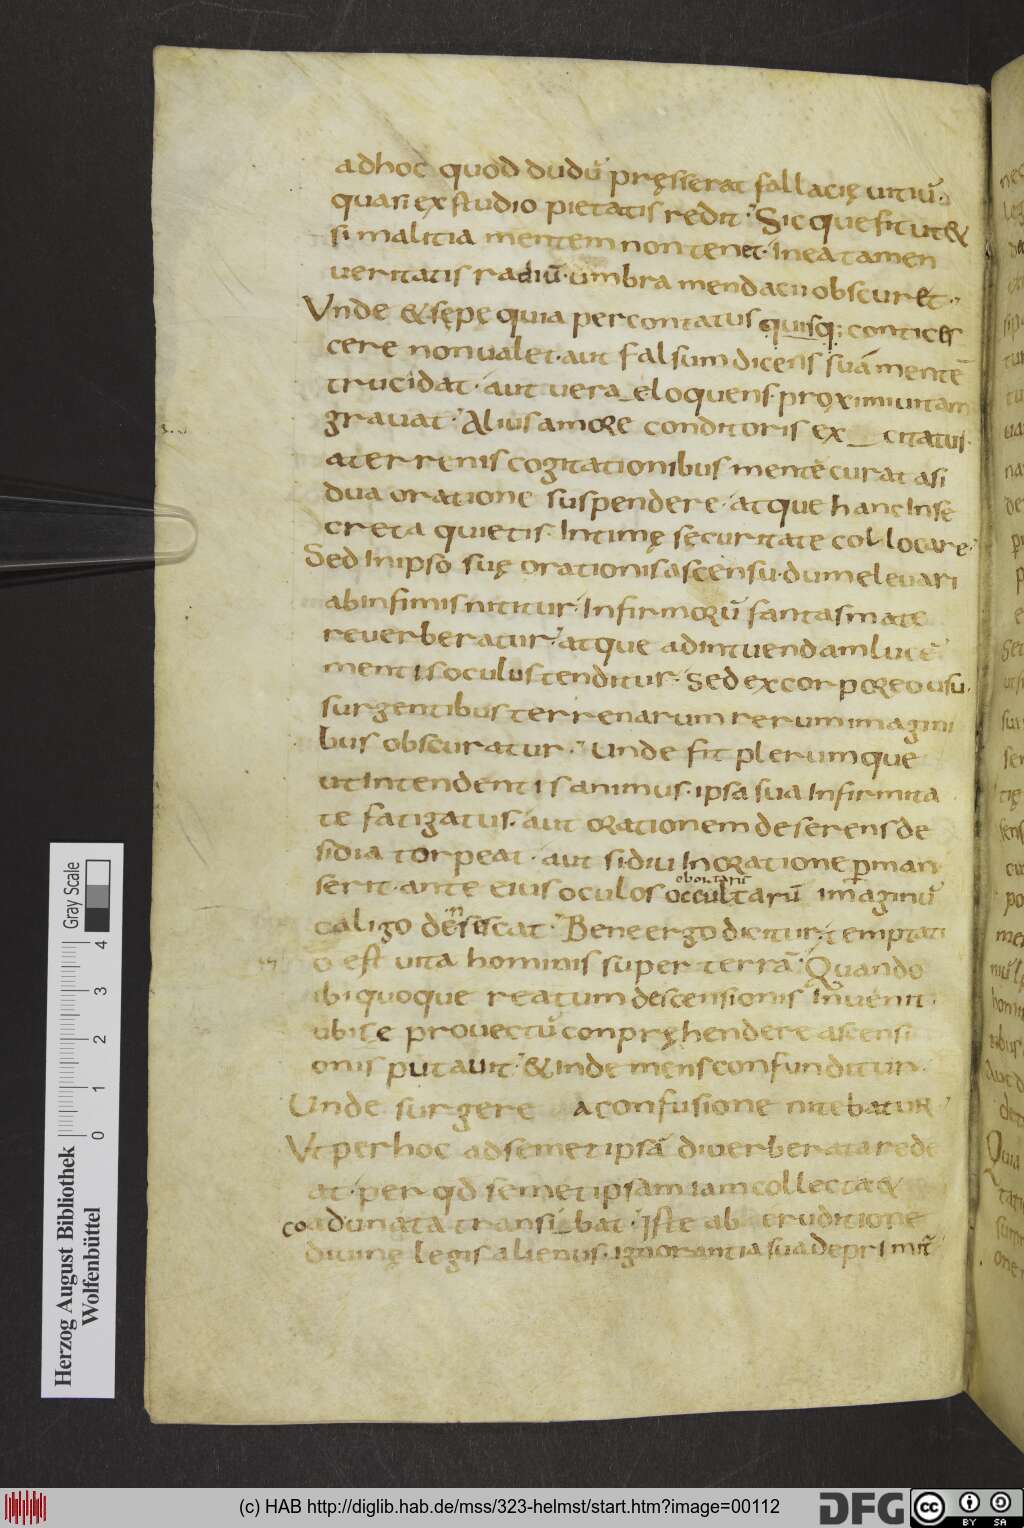 adhoc quod dudū pręsserat fallacię uitiū.
quasi ex studio pietatis redit. Sicque fit ut &
si malitia mentem non tenet. In ea tamen
ueritatis radiū. umbra mendacii obscuret.
Unde & sępę quia percontatus quisq; contices
cere non ualet. aut falsum dicens suā mentē
trucidat. aut uera eloquens. proximi uitam
grauat. Alius amore conditoris ex citatus.
a terrenis cogitationibus mentē curat asi
dua oratione suspendere. atque hanc In se
creta quietis. Intimę sęcuritate collocare.
Sed In ipso suę orationis ascensu. dum eleuari
ab infimis nititur. Infirmorū fantasmate
reuerberatur. atque ad intuendam lucē
mentis oculus tenditur. Sed ex corporeo usu.
surgentibus terrenarum rerum imagini
bus obscuratur. Unde fit plerumque
ut Intendentis animus. ipsa sua Infirmita
te fatigatus. aut orationem deserens de
sidia torpeat. aut si diu In oratione ꝑman
serit. ante eius oculos occultarū imaginū
obortarū
caligo densescat. Bene ergo dicitur. temptati
o est uita hominis super terrā. Quando
ibi quoque reatum descensionis Inuenit.
ubi se prouectū conpręhendere ascensi
onis putauit. & inde mens confunditur.
Unde surgere a confusione nitebatur
Ut per hoc ad semet ipsā diuerberata rede
at. per qd semet ipsam iam collecta &
coadunata transibat. Iste ab eruditione
diuinę legis alienus. ignorantia sua deprimit̄
Herzog August Bibliothek
Wolfenbüttel
Gray Scale
0 1 2 3 4
(c) HAB http://diglib.hab.de/mss/323-helmst/start.htm?image=00112
DFG
cc BY SA